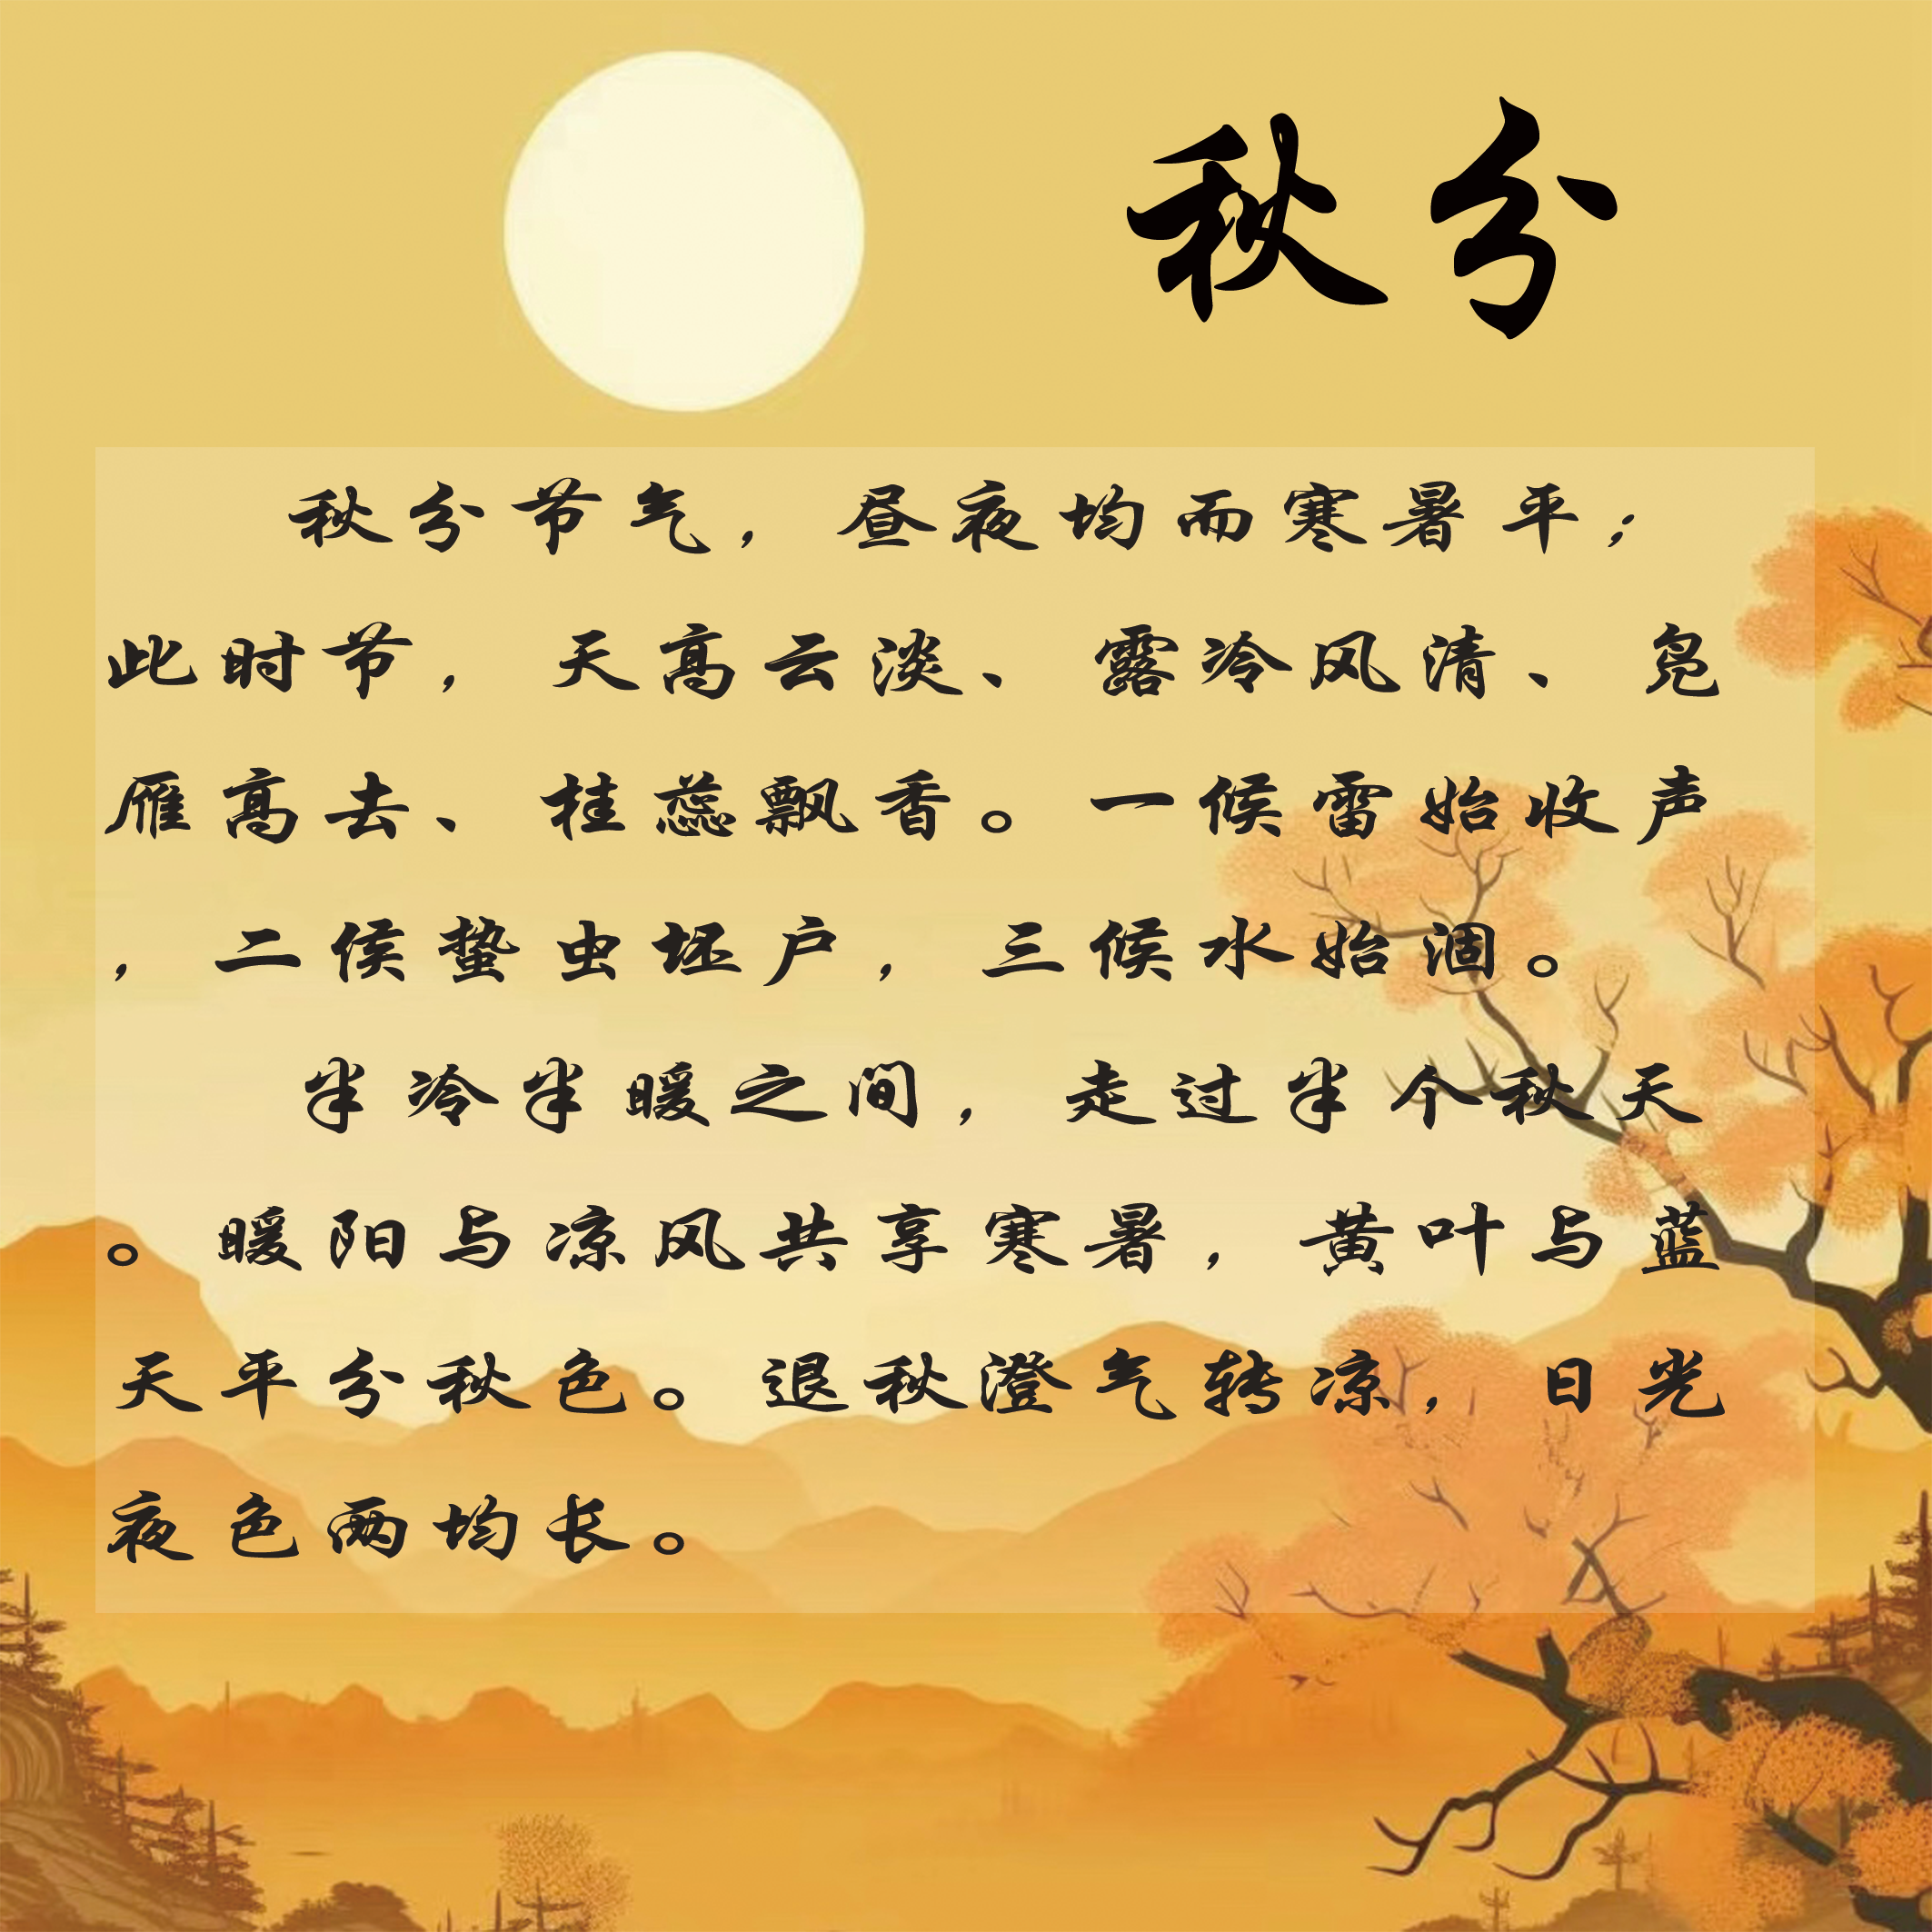 秋分
秋分节气，昼夜均而寒暑平；
此时节，天高云淡、露冷风清、凫
雁高去、桂蕊飘香。一候雷始收声
，二侯蛰虫坯户，三候水始涸。
半冷半暖之间，走过半个秋天
。暖阳与凉风共享寒暑，黄叶与蓝
天平分秋色。退秋澄气转凉，日光
夜色两均长。